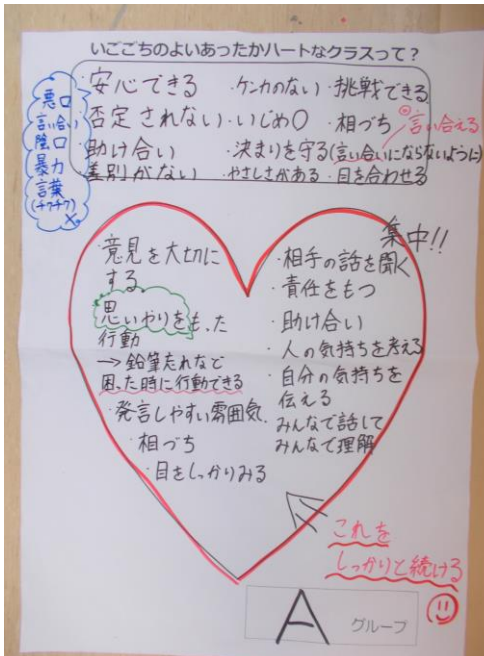 いごこちのよいあったかハートなクラスって？
・安心できる ・ケンカのない ・挑戦できる
・否定されない ・いじめ0 ・相づち
言い合える
・助け合い ・決まりを守る(言い合いにならないように)
・差別がない ・やさしさがある ・目を合わせる
悪口
言い合い
陰口
暴力
言葉
(チクチク)
×
集中!!
・意見を大切に
する
思いやりをもった
行動
→鉛筆忘れなど
困った時に行動できる
・発言しやすい雰囲気
・相づち
・目をしっかりみる
・相手の話を聞く
・責任をもつ
・助け合い
・人の気持ちを考える
・自分の気持ちを
伝える
・みんなで話して
みんなで理解
これを
しっかりと続ける
A グループ